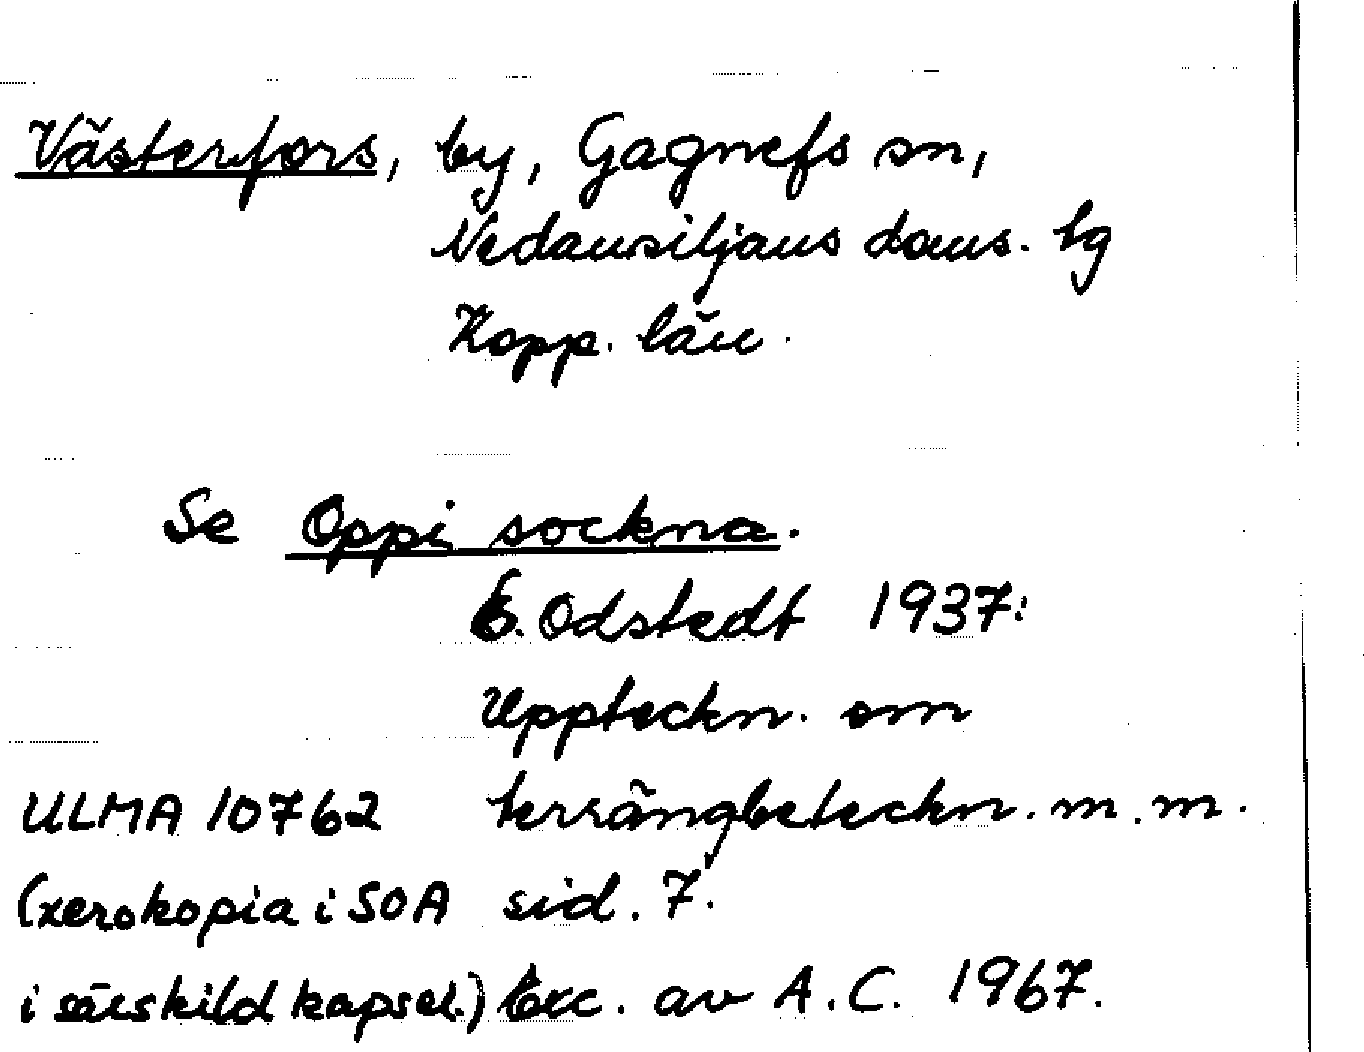 Västerfors, by, Gagnefs sn,
Nedansiljans doms. hg
Kopp. län.
Se Oppi sockna.
E. Odstedt 1937:
Uppteckn. om
ULMA 10762 terrängbeteckn. m. m.
(xerokopia i SOA sid. 7.
i särskild kapsel.) Exc. av A. C. 1967.